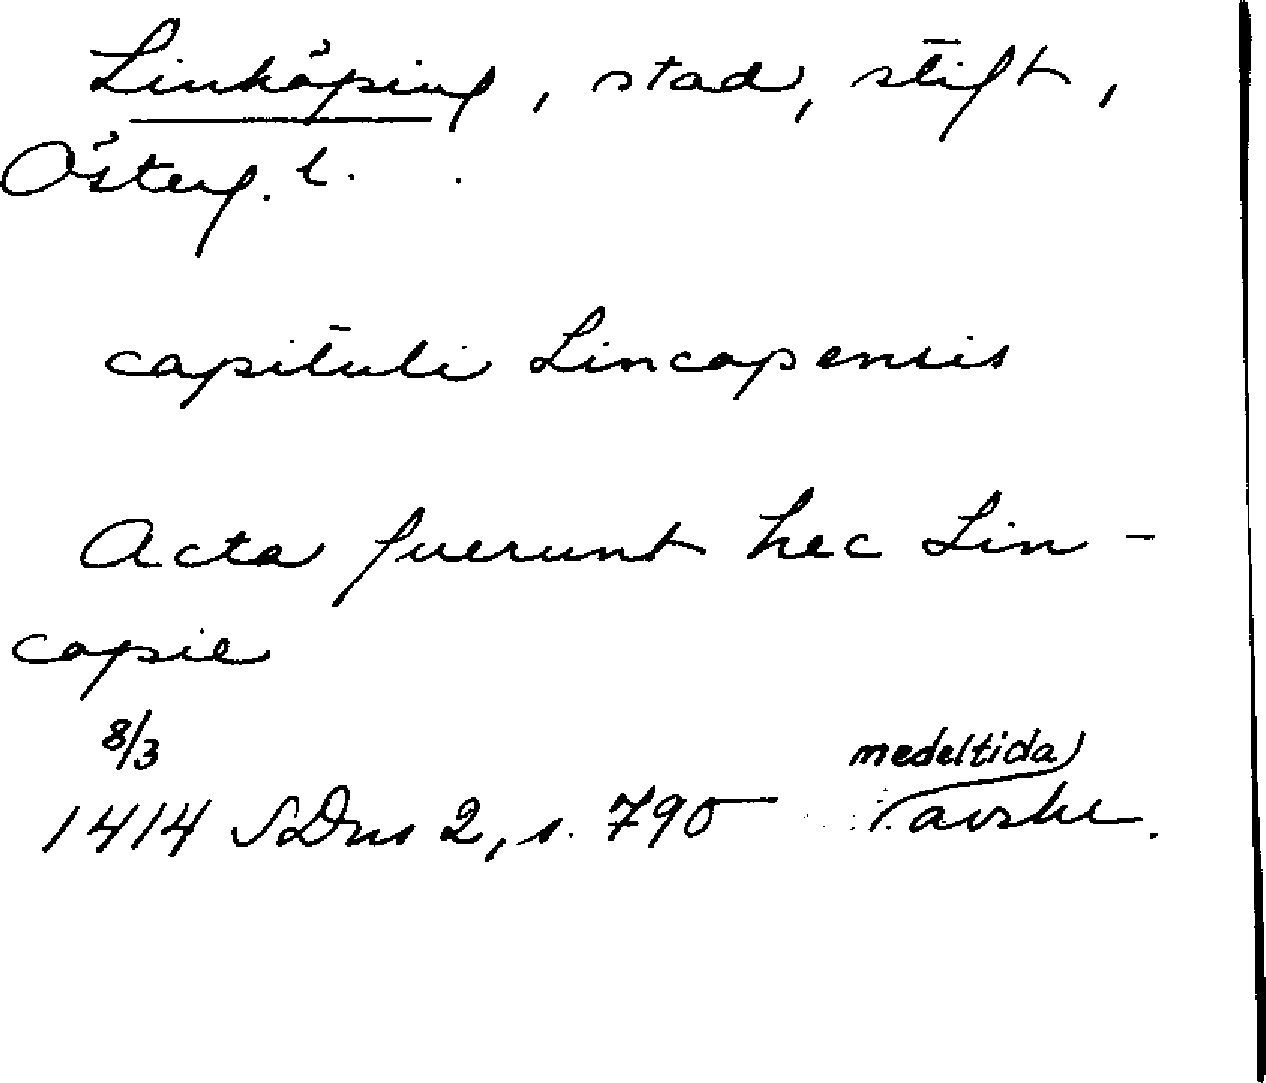 Linköping, stad, stift,
Österg. l.
capituli Lincopensis
Acta fuerunt hec Lin-
copie
8/3 medeltida
1414 SDns 2, s. 790 avskr.